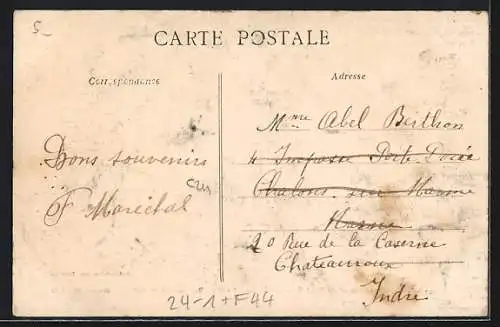 5_
CARTE POSTALE
Correspondance
Adresse
Mme Abel Berthon
4 Impasse Porte-Dorée
Chalons sur Marne
Marne
20 Rue de la Caserne
Chateauroux
Indre
Bons souvenirs
F Maréchal
24-1+F44